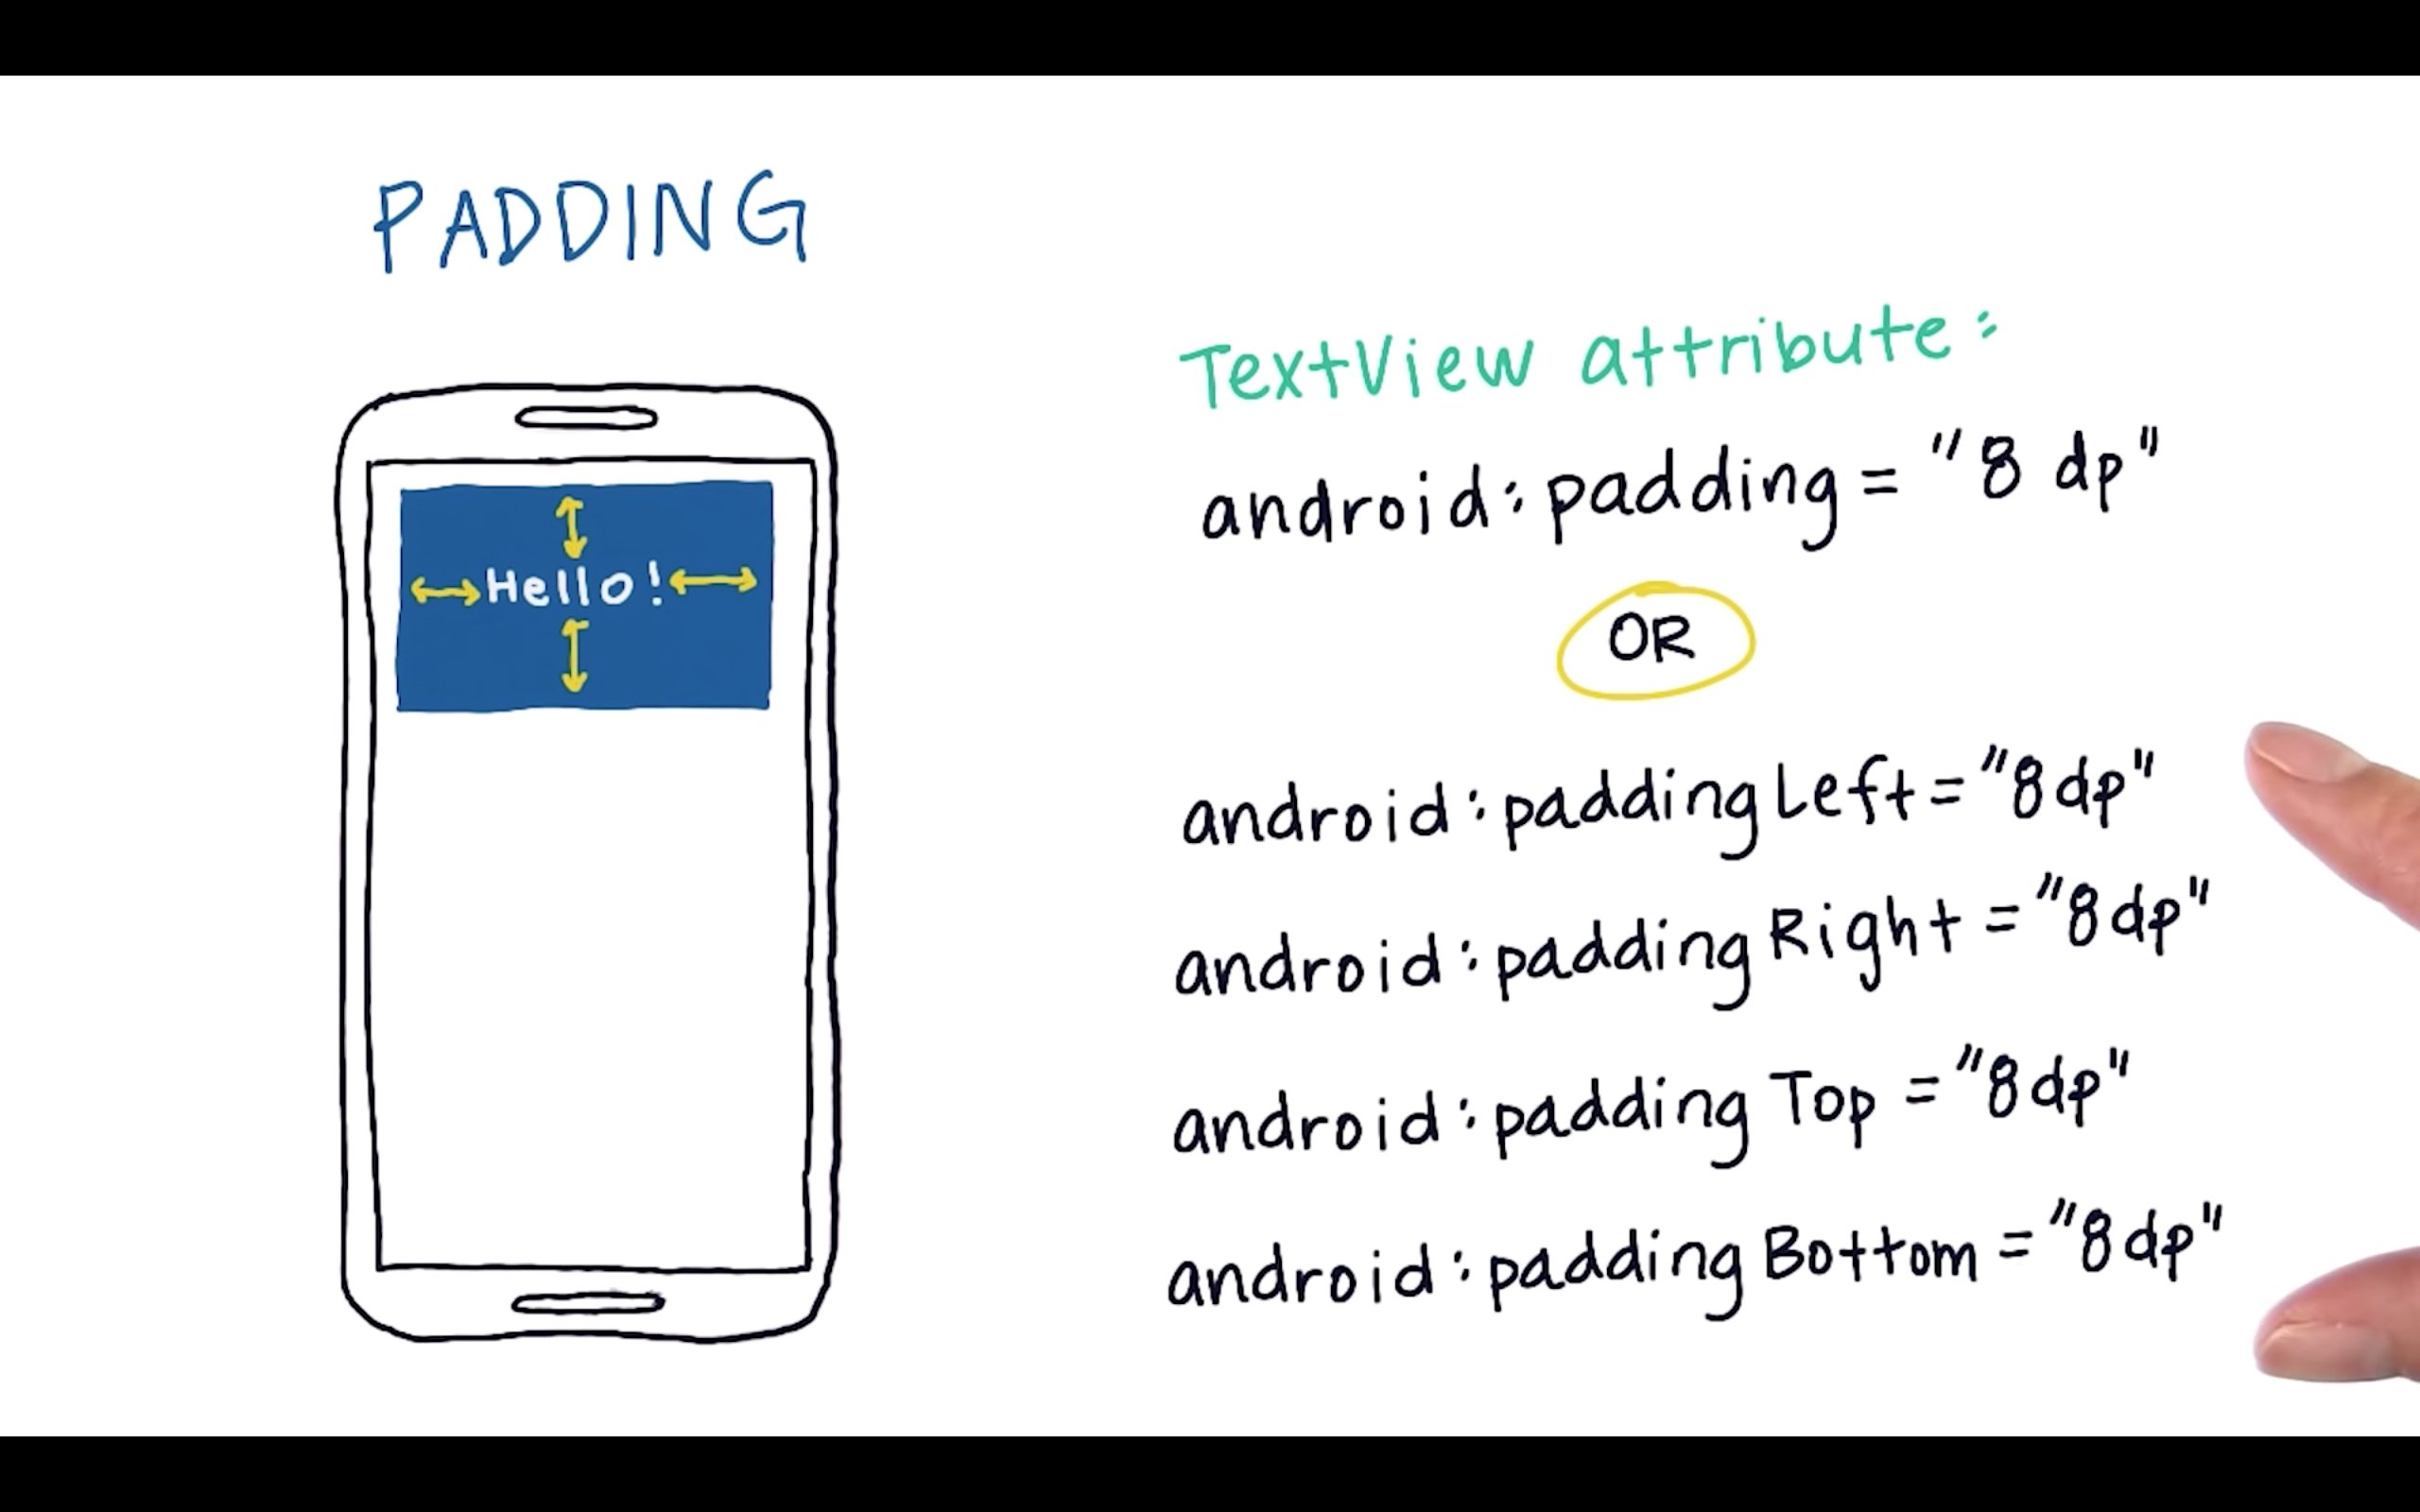 PADDING
Hello!
TextView attribute:
android:padding = "8 dp"
OR
android:paddingLeft="8dp"
android:paddingRight="8dp"
android:paddingTop="8dp"
android:paddingBottom="8dp"